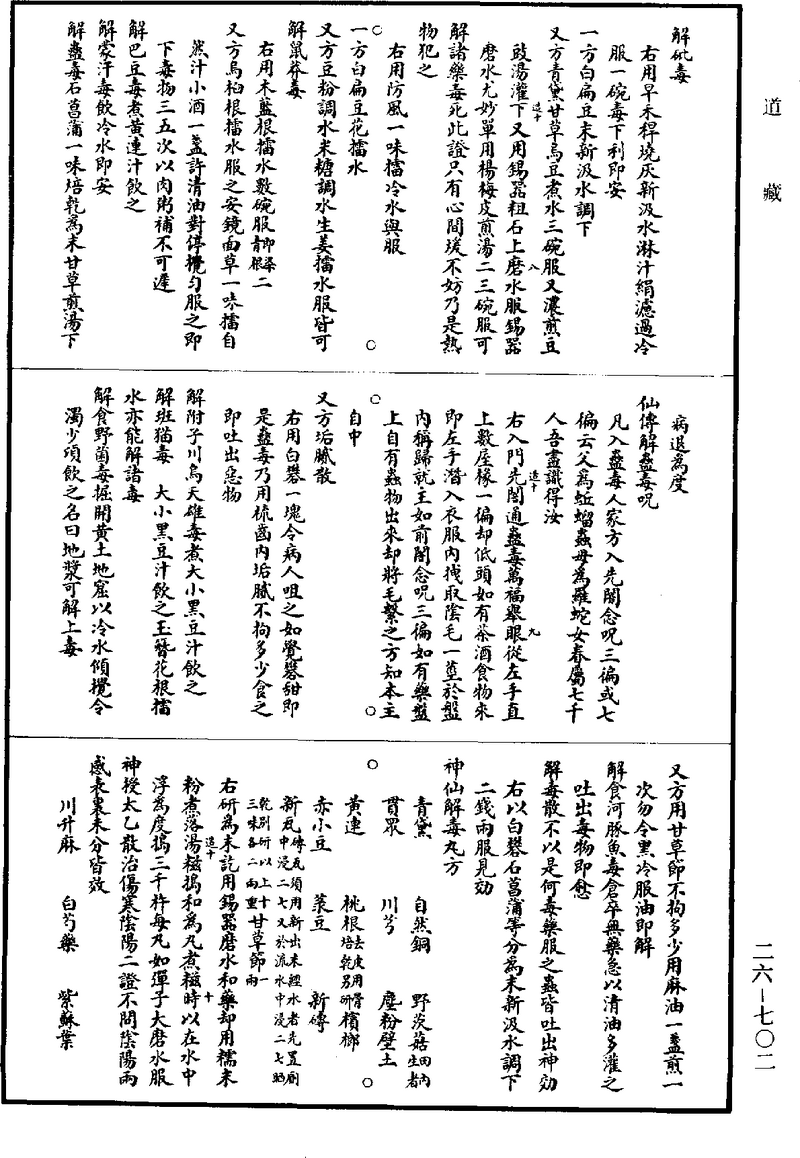 道藏
解砒毒
右用早禾稈燒灰新汲水淋汁絹濾過冷
服一碗毒下利即安
一方白扁豆末新汲水調下
又方青黛甘草烏豆煮水三碗服又濃煎豆
豉湯灌下又用錫器粗石上磨水服錫器
磨水尤妙單用楊梅皮煎湯二三碗服可
解諸藥毒死此證只有心間煖不妨乃是熱
物犯之
右用防風一味擂冷水與服
一方白扁豆花擂水
又方豆粉調水米糖調水生姜擂水服皆可
解鼠莽毒
右用木藍根擂水數碗服即染青根二
又方烏桕根擂水服之安鏡面草一味擂自
然汁小酒一盞許清油對停攪勻服之即
下毒物三五次以肉粥補不可遲
解巴豆毒煮黃連汁飲之
解蒙汗毒飲冷水即安
解蠱毒石菖蒲一味焙乾為末甘草煎湯下
造十
八
病退為度
仙傳解蠱毒呪
凡入蠱毒人家方入先闇念呪三徧或七
徧云父為蚯蟲母為羅蛇女眷屬七千
人吾盡識得汝
右入門先闇通蠱毒萬福舉眼從左手直
上數屋椽一徧却低頭如有茶酒食物來
即左手潛入衣服內拽取陰毛一莖於盤
內稱歸就主如前闇念呪三徧如有藥盤
上自有蟲物出來却將毛繫之方知本主
自中
又方垢膩散
右用白礬一塊令病人咀之如覺礬甜即
是蠱毒乃用梳齒內垢膩不拘多少食之
即吐出惡物
解附子川烏天雄毒煮大小黑豆汁飲之
解班猫毒　大小黑豆汁飲之玉簪花根擂
水亦能解諸毒
解食野菌毒掘開黃土地窟以冷水傾攪令
濁少頃飲之名曰地漿可解上毒
造十
九
又方用甘草節不拘多少用麻油一盞煎一
次勿令黑冷服油即解
解食河豚魚毒倉卒無藥急以清油多灌之
吐出毒物即愈
解毒散不以是何毒藥服之蟲皆吐出神効
右以白礬石菖蒲等分為末新汲水調下
二錢兩服見効
神仙解毒丸方
青黛　自然銅　野茨菇田內生者
貫眾　川芎　塵粉壁土
黃連　桃根去皮用骨焙乾別研　檳榔
赤小豆　菉豆　新磚
新瓦磚瓦須用新出未經水者先置廁中浸二七又於流水中浸二七晒乾別研以上十三味各二兩重　甘草節一兩
右研為末訖用錫器磨水和藥却用糯米
粉煮落湯糍搗和為丸煮糍時以在水中
浮為度搗三千杵每丸如彈子大磨水服
神授太乙散治傷寒陰陽二證不問陰陽兩
感表裏未分皆效
川升麻　白芍藥　紫蘇葉
造十
十
二六—七〇二